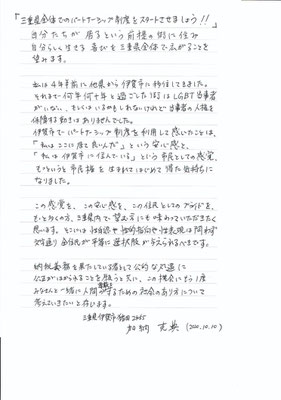 「三重県全体でのパートナーシップ制度をスタートさせましょう!!」
自分たちが居るという前提の街に住み
自分らしく生きる喜びを三重県全体で広がることを
望みます。
私は4年半前に他県から伊賀市に移住してきました。
それまで何年何十年と過ごした街にはLGBT当事者
がいない、もしくはいるかもしれないけれど当事者の人権を
保障する動きはありませんでした。
伊賀市でパートナーシップ制度を利用して感じたことは、
「私はここに居て良いんだ」という安心感と、
「私は伊賀市に住んでいる」という市民としての感覚、
という市民権を はじめて得た気持ちに
なりました。
この感覚を、この安心感を、この住民としてのプライドを、
もっと多くの方、三重県内で望む方にも味わっていただきたく
思います。そこには性自認や性的指向や性表現は問わず
全住民が平等に選択肢が与えられるべきです。
納税義務を果たしている者として公的な処遇に
公正がはかられることを願うと共に、この機会にもう1度
みなさんと一緒に人間を守るための社会のあり方について
考えていきたいと存じます。
三重県伊賀市
(2020.10.10)